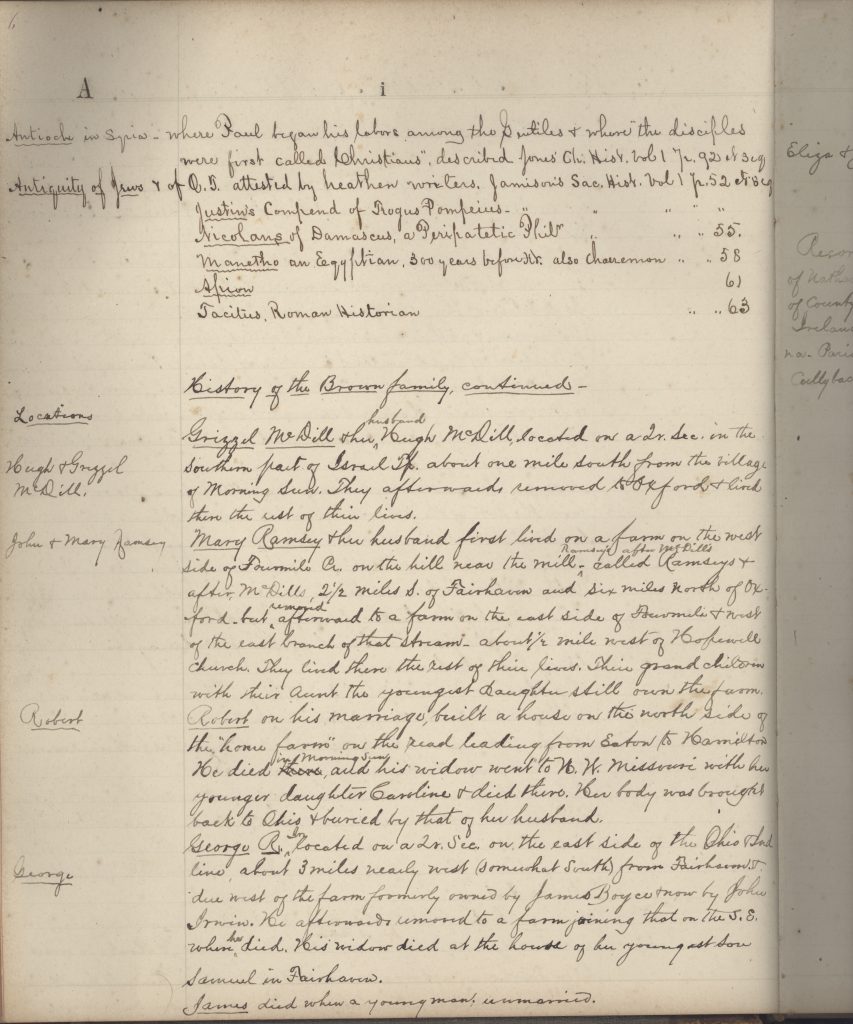 6
A i
Antioch in Syria - where Paul began his labors among the Gentiles & where "the disciples
were first called Christians", described Jones' Ch. Hist. Vol 1 p. 92 et seq
Antiquity of Jews & of O.T. attested by heathen writers. Jamison's Sac. Hist. Vol 1 p. 52 et seq
Justin's Compend of Trogus Pompeius - " " " " "
Nicolaus of Damascus, a Peripatetic Philr " " " 55.
Manetho an Eegyptian, 300 years before Xt. also Chaeremon " " 58
Apion 61
Tacitus, Roman Historian " " 63
History of the Brown family, continued -
Locations
Grizzel McDill & her husband Hugh McDill, located on a Qr. Sec. in the
Hugh & Grizzel
McDill.
southern part of Israel Tp. about one mile south from the village
of Morning Sun. They afterwards removed to Oxford & lived
there the rest of their lives.
John & Mary Ramsey
Mary Ramsey & her husband first lived on a farm on the west
side of Fourmile Cr. on the hill near the mill - called Ramseys & Ramsey's after McDills
after, McDills, 2 1/2 miles S. of Fairhaven and six miles north of Ox-
ford - but removed afterward to a farm on the east side of Fourmile & west
of the east branch of that stream - about 1/2 mile west of Hopewell
Church. They lived there the rest of their lives. Their grand children
with their Aunt the youngest daughter still own the farm.
Robert
Robert on his marriage, built a house on the north side of
the "home farm" on the road leading from Eaton to Hamilton
He died there in Morning Sun, and his widow went to N. W. Missouri with her
younger daughter Caroline & died there. Her body was brought
back to Ohio & buried by that of her husband.
George
George R. located on a Qr. Sec. on the east side of the Ohio & Ind
line, about 3 miles nearly west (somewhat South) from Fairhaven &
due west of the farm formerly owned by James Boyce & now by John
Irwin. He afterwards removed to a farm joining that on the S.E.
where he died. His widow died at the house of her youngest son
Samuel in Fairhaven.
James died when a young man, unmarried.
Eliza &
Recor
of Nath
of County
Irelan
na - Paris
Cullyba